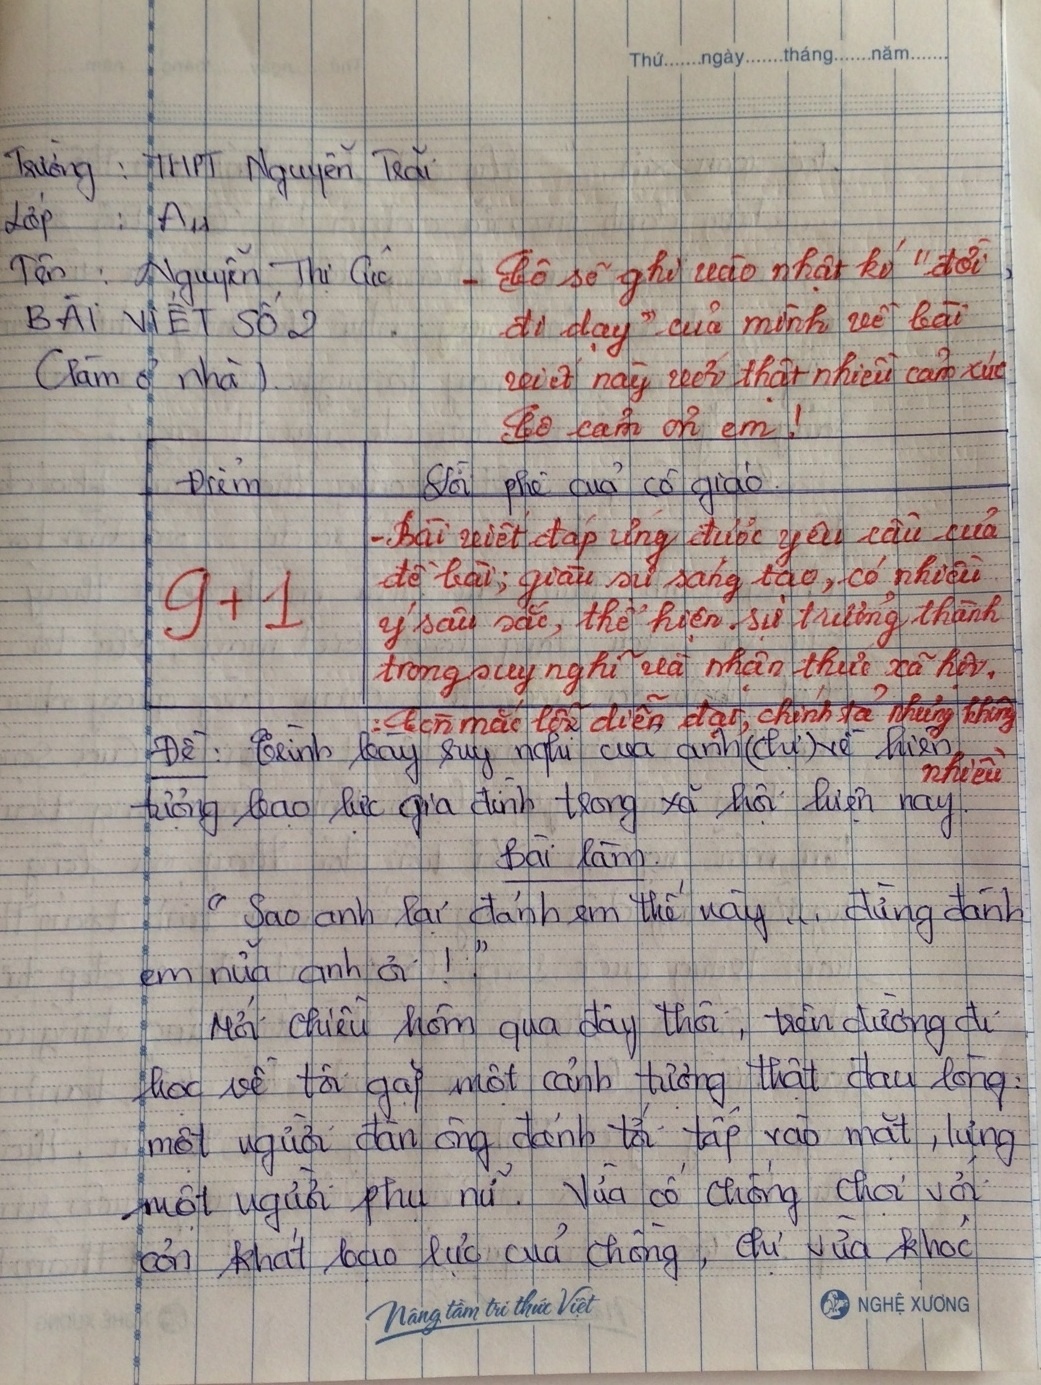 Thứ.......ngày.......tháng.......năm.......
Trường : THPT Nguyễn Trãi
Lớp : A11
Tên : Nguyễn Thị Cúc
- Cô sẽ ghi vào nhật kí "đời
BÀI VIẾT SỐ 2
đi dạy" của mình về bài
(Làm ở nhà).
viết này với thật nhiều cảm xúc
Cô cảm ơn em!
Điểm
Lời phê của cô giáo.
9+1
- Bài viết đáp ứng được yêu cầu của
đề bài; giàu sự sáng tạo, có nhiều
ý sâu sắc, thể hiện sự trưởng thành
trong suy nghĩ và nhận thức xã hội.
: Còn mắc lỗi diễn đạt, chính tả nhưng không
nhiều
Đề: Trình bày suy nghĩ của anh (chị) về hiện
tượng bạo lực gia đình trong xã hội hiện nay.
Bài làm.
"Sao anh lại đánh em thế này... đừng đánh
em nữa anh ơi!"
Mới chiều hôm qua đây thôi, trên đường đi
học về tôi gặp một cảnh tượng thật đau lòng:
một người đàn ông đánh tới tấp vào mặt, lưng
một người phụ nữ. Vừa cố chống chọi với
cơn khát bạo lực của chồng, chị vừa khóc
Nâng tầm tri thức Việt
NGHỆ XƯƠNG